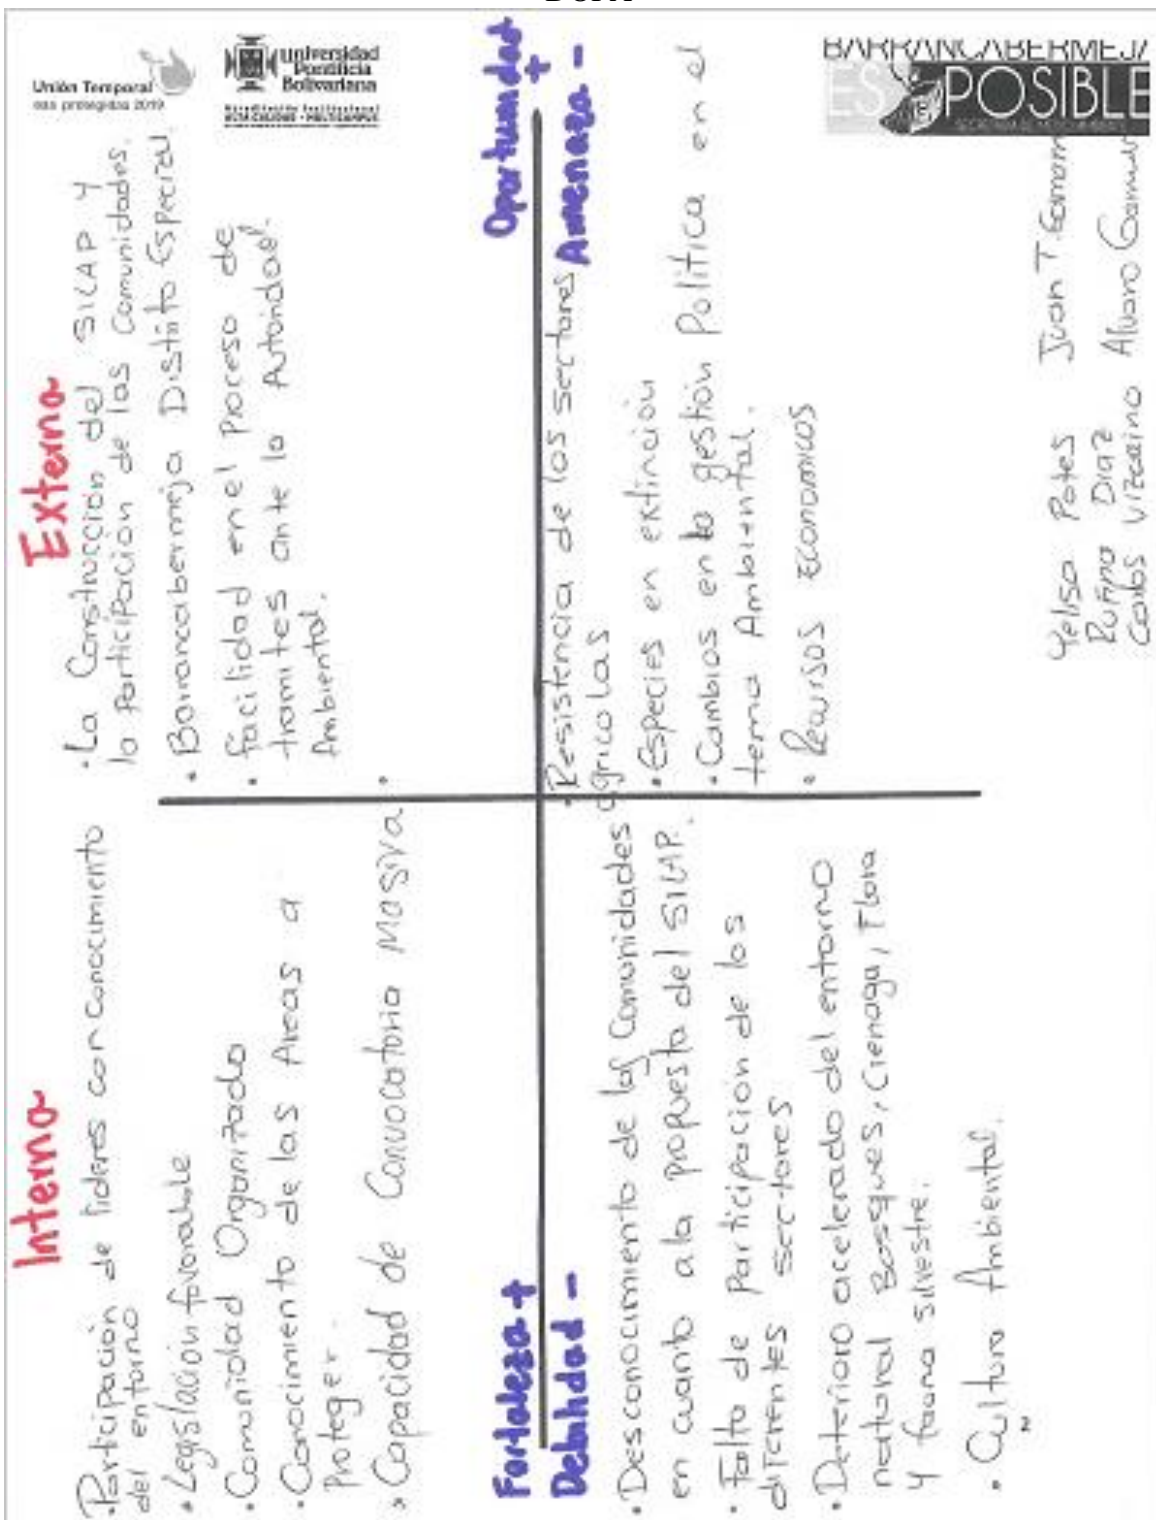 Unión Temporal
Universidad
Pontificia
Bolivariana
BARRANCABERMEJA
ES POSIBLE
Interno
• Participación de lideres con conocimiento
del entorno
• Legislación favorable
• Comunidad Organizada
• Conocimiento de las Areas a
Proteger.
• Capacidad de Convocatoria Masiva
Externo
• La Construcción del SILAP y
la Participación de las Comunidades.
• Barrancabermeja Distrito Especial
• facilidad en el proceso de
tramites ante la Autoridad
Ambiental.
•
Fortaleza +
Debilidad -
Oportunidad +
Amenaza -
• Desconocimiento de las Comunidades
en cuanto a la propuesta del SILAP.
• Falta de Participación de los
diferentes sectores
• Deterioro acelerado del entorno
natural Bosques, Cienaga, Flora
y fauna silvestre.
• Cultura Ambiental.
• Resistencia de los sectores
agricolas
• Especies en extinción
• Cambios en la gestión Politica en el
tema Ambiental.
• Recursos Economicos
Yelisa Potes Juan T.
Rufina Diaz Alvaro
Carlos Vizcaino